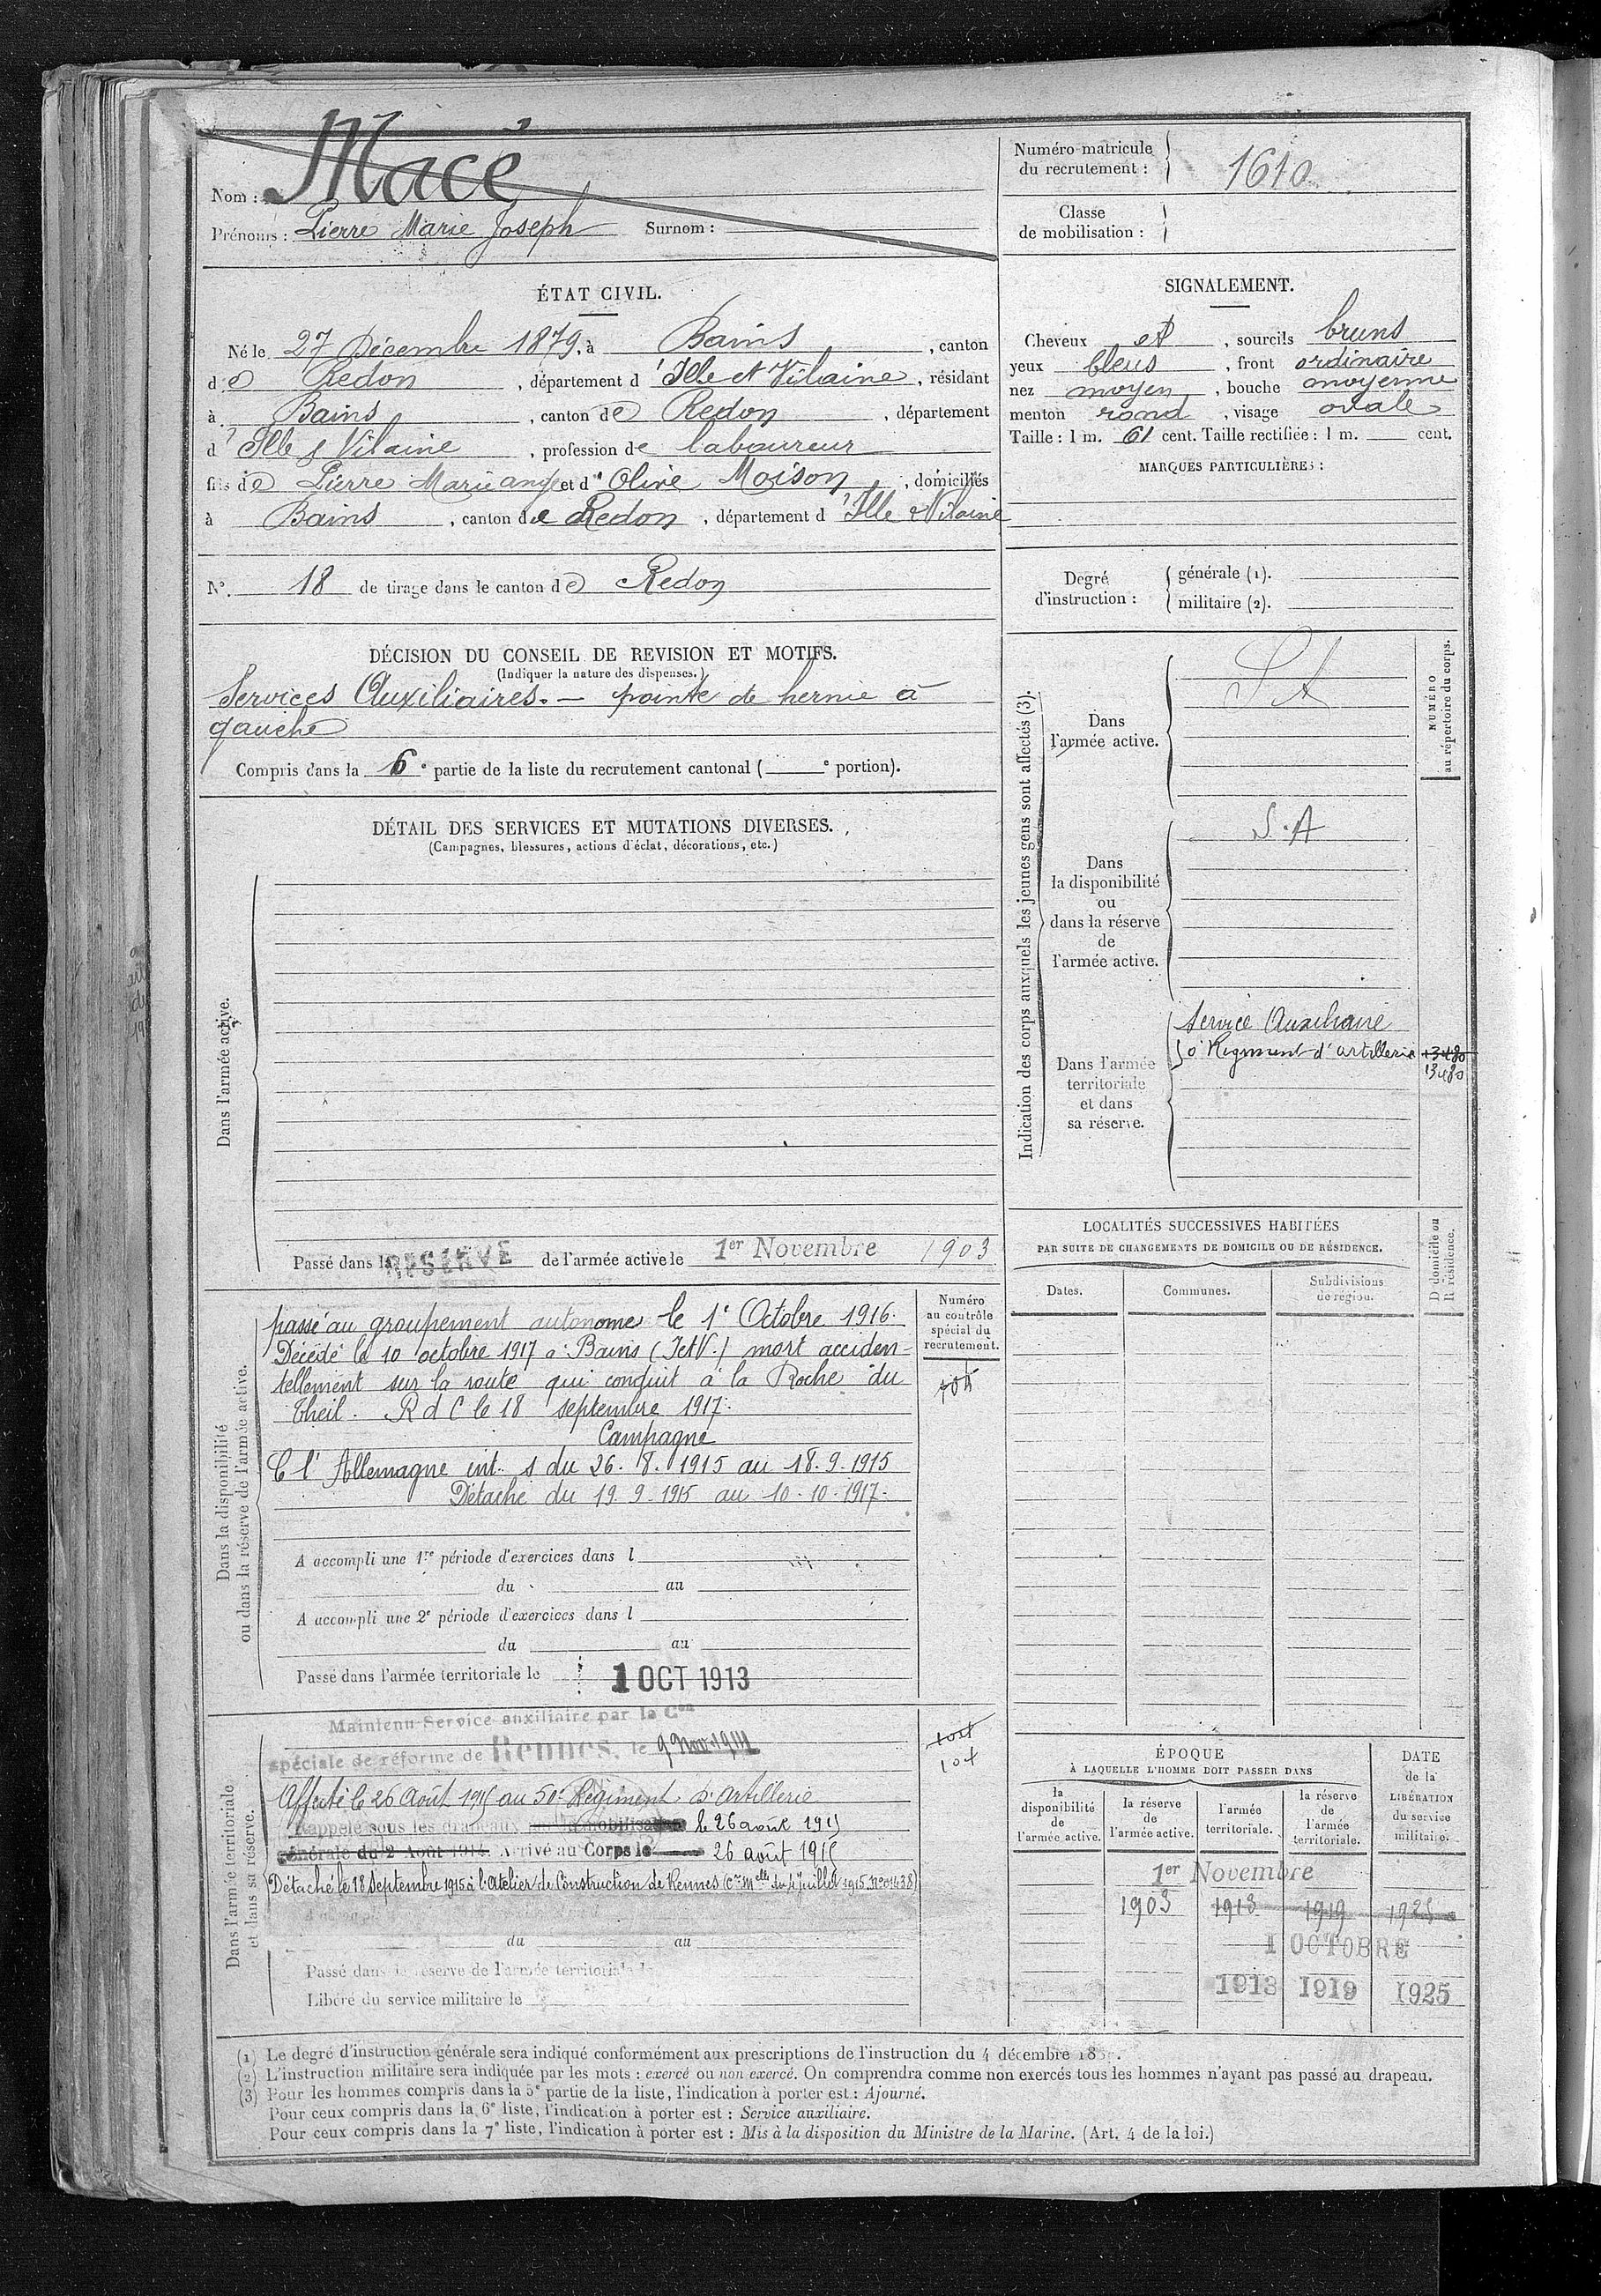 Nom : Macé
Prénoms : Pierre Marie Joseph Surnom :
Numéro matricule
du recrutement :
1610
Classe
de mobilisation :
ÉTAT CIVIL.
Né le 27 Décembre 1879, à Bains, canton
de Redon, département d'Ille et Vilaine, résidant
à Bains, canton de Redon, département
d'Ille & Vilaine, profession de laboureur
fils de Pierre Marie ange et d'Olive Moison, domiciliés
à Bains, canton de Redon, département d'Ille & Vilaine
N° 18 de tirage dans le canton de Redon
DÉCISION DU CONSEIL DE REVISION ET MOTIFS.
(Indiquer la nature des dispenses.)
Services Auxiliaires. — pointe de hernie à
gauche
Compris dans la 6e partie de la liste du recrutement cantonal ( e portion).
SIGNALEMENT.
Cheveux et, sourcils bruns
yeux bleus, front ordinaire
nez moyen, bouche moyenne
menton rond, visage ovale
Taille : 1 m. 61 cent. Taille rectifiée : 1 m. cent.
MARQUES PARTICULIÈRES :
Degré
d'instruction :
générale (1).
militaire (2).
Indication des corps auxquels les jeunes gens sont affectés (3).
NUMÉRO
au répertoire du corps.
Dans
l'armée active.
S A
Dans
la disponibilité
ou
dans la réserve
de
l'armée active.
S. A
Dans l'armée
territoriale
et dans
sa réserve.
Service Auxiliaire
50e Régiment d'artillerie 13480
13480
DÉTAIL DES SERVICES ET MUTATIONS DIVERSES.
(Campagnes, blessures, actions d'éclat, décorations, etc.)
Dans l'armée active.
Passé dans la RÉSERVE de l'armée active le 1er Novembre 1903
Dans la disponibilité
ou dans la réserve de l'armée active.
Numéro
au contrôle
spécial du
recrutement.
passé au groupement autonome le 1e Octobre 1916.
Décédé le 10 octobre 1917 à Bains (I et V.) mort acciden-
tellement sur la route qui conduit à la Roche du
Theil. R d C le 18 septembre 1917.
Campagne
C l'Allemagne int. s du 26. 8. 1915 au 18. 9. 1915
Détaché du 19. 9. 1915 au 10. 10. 1917.
A accompli une 1re période d'exercices dans l
du au
A accompli une 2e période d'exercices dans l
du au
Passé dans l'armée territoriale le 1 OCT 1913
Dans l'armée territoriale
et dans sa réserve.
Maintenu Service auxiliaire par la Con
spéciale de réforme de Rennes, le 9 Nov. 1914
Affecté le 26 Août 1915 au 50e Régiment d'Artillerie
Rappelé sous les drapeaux le 26 août 1915
générale du 2 Août 1914. Arrivé au Corps le 26 août 1915
Détaché le 18 Septembre 1915 à l'Atelier de Construction de Rennes (Cre Melle du 4 Juillet 1915 N° 01438)
du au
Passé dans la réserve de l'armée territoriale le
Libéré du service militaire le
LOCALITÉS SUCCESSIVES HABITÉES
PAR SUITE DE CHANGEMENTS DE DOMICILE OU DE RÉSIDENCE.
Dates. Communes. Subdivisions
de région.
D domicile ou
R résidence.
ÉPOQUE
À LAQUELLE L'HOMME DOIT PASSER DANS
la
disponibilité
de
l'armée active.
la réserve
de
l'armée active.
l'armée
territoriale.
la réserve
de
l'armée
territoriale.
DATE
de la
LIBÉRATION
du service
militaire.
1er Novembre
1903 1913 1919 1925
1 OCTOBRE
1913 1919 1925
(1) Le degré d'instruction générale sera indiqué conformément aux prescriptions de l'instruction du 4 décembre
(2) L'instruction militaire sera indiquée par les mots : exercé ou non exercé. On comprendra comme non exercés tous les hommes n'ayant pas passé au drapeau.
(3) Pour les hommes compris dans la 5e partie de la liste, l'indication à porter est : Ajourné.
Pour ceux compris dans la 6e liste, l'indication à porter est : Service auxiliaire.
Pour ceux compris dans la 7e liste, l'indication à porter est : Mis à la disposition du Ministre de la Marine. (Art. 4 de la loi.)